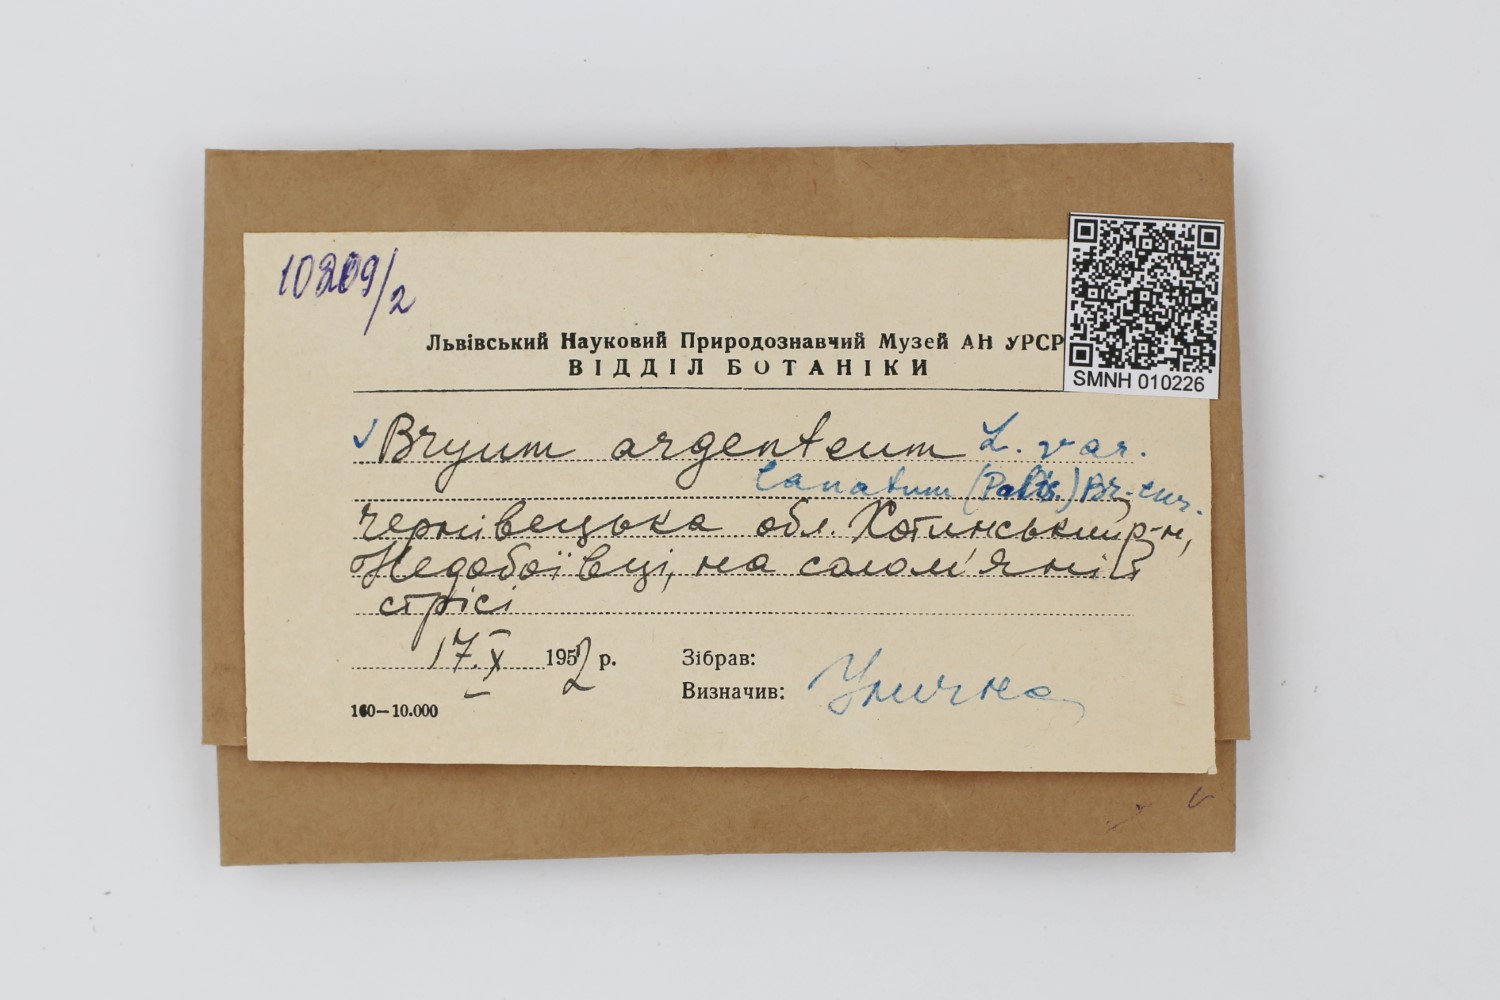 10209/2
Львівський Науковий Природознавчий Музей АН УРСР
ВІДДІЛ БОТАНІКИ
SMNH 010226
✓ Bryum argenteum L. var.
lanatum (Palis.) Br. eur.
Чернівецька обл. Хотинський р-н,
Недобоївці, на солом'яній
стрісі
17.X 1952 р.
Зібрав:
Визначив: Улична
100—10.000